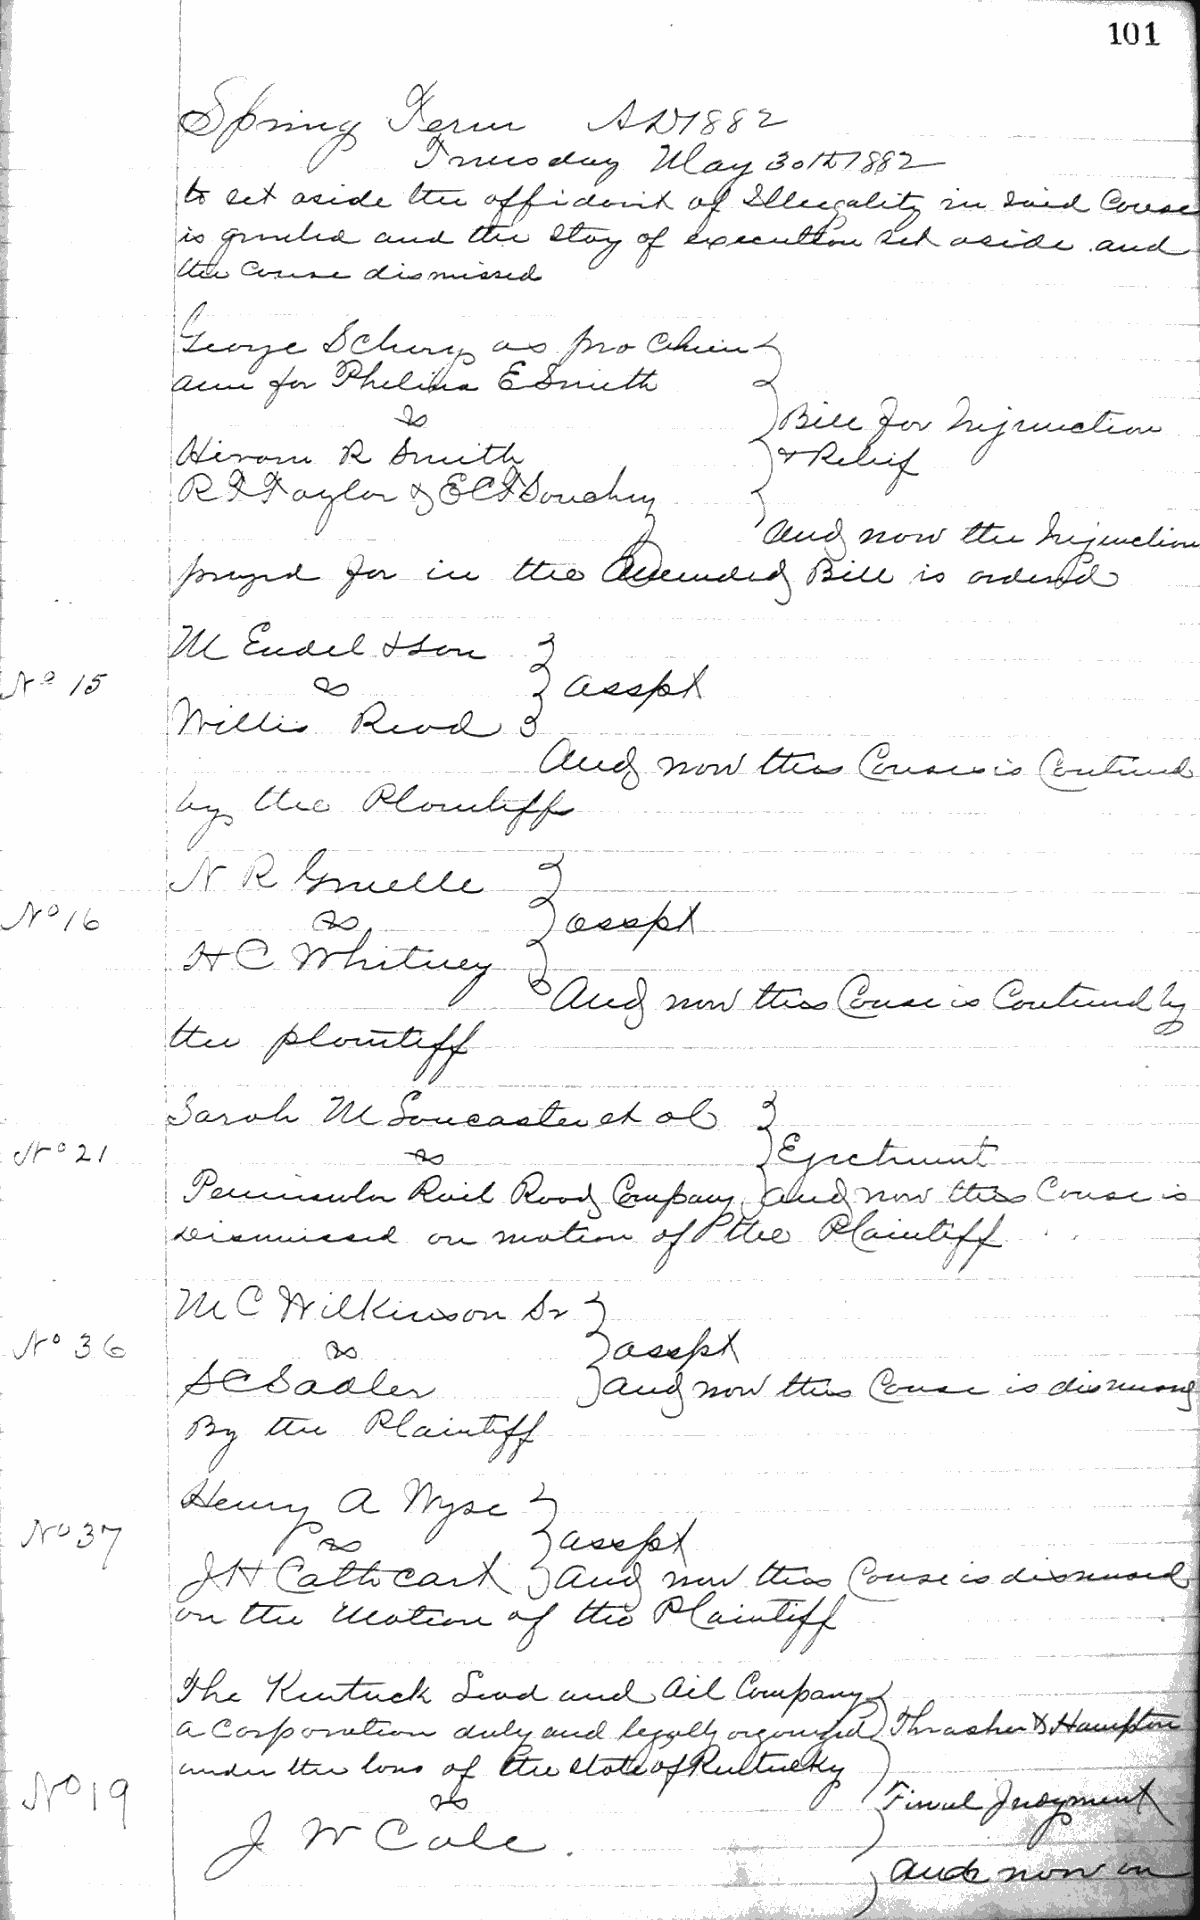 101
Spring Term AD 1882
Tuesday May 30th 1882
to set aside the affidavit of Illegality in said Cause
is granted and the Stay of execution set aside and
the Cause dismissed
George as pro Chein
ami for E Smith
vs
Hiram R Smith
R F Taylor & E C F
Bill for Injunction
& Relief
and now the Injunction
prayed for in the Amended Bill is ordered
M Endel & Son
No 15
vs
asspt
Willis Reod
And now this Cause is Contined
by the Plaintiff
N R Gruelle
No 16
vs
asspt
H C Whitney
And now this Cause is Continud by
the plaintiff
Sarah M et al
No 21
vs
Ejectment
Peninsular Rail Road Company and now this Cause is
Dismissed on motion of the Plaintiff
M C Wilkinson Sr
No 36
vs
asspt
S C Sadler
and now this Cause is dismissed
By the Plaintiff
Henry A Wyse
No 37
vs
asspt
J H Cathcart
And now this Cause is dismissed
on the Motion of the Plaintiff
The Kentuck Lead and Oil Company
a Corporation duly and legally organized
Thrasher & Hampton
under the laws of the State of Kentucky
No 19
vs
Final Judgment
J W Cole.
and now on